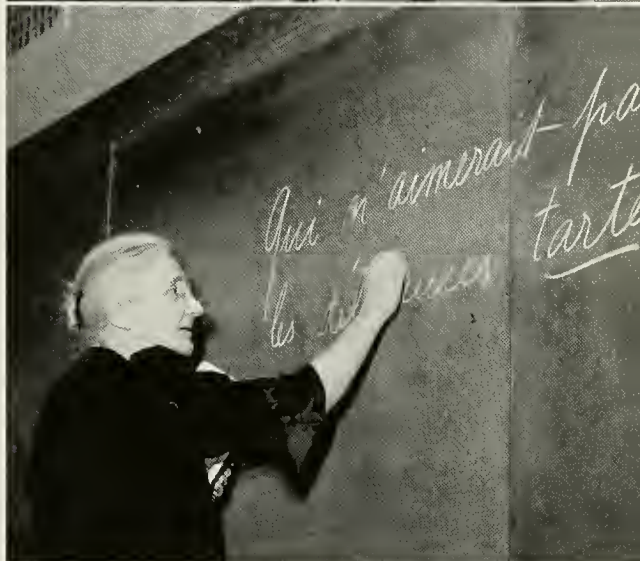 Qui n'aimerait pa
les
tarte